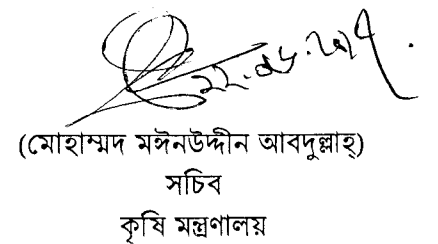 ২২.০৬.২০১৭.
(মোহাম্মদ মঈনউদ্দীন আবদুল্লাহ্)
সচিব
কৃষি মন্ত্রণালয়